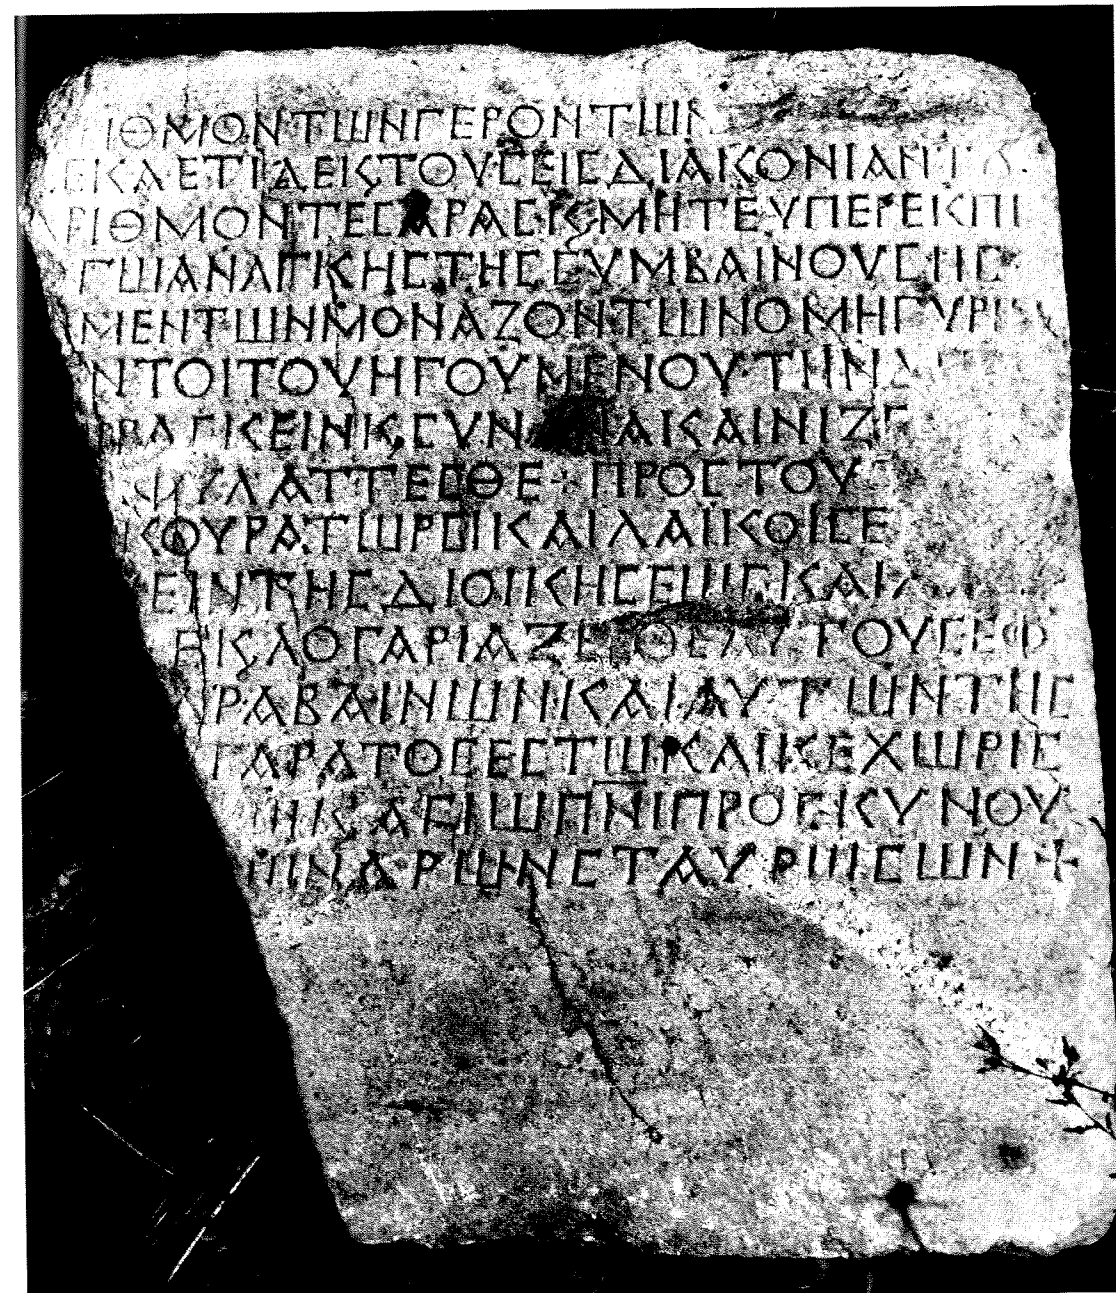 ΙΘΜΟΝΤΩΝΓΕΡΟΝΤΩΝ
ΕΚΑΕΤΙΔΕΚΤΟΥΣΕΙΣΔΙΑΚΟΝΙΑΝΤ
ΑΡΙΘΜΟΝΤΕΣΑΡΑΣΚΜΗΤΕΥΠΕΡΕΚΠΙ
ΓΩΙΑΝΑΓΚΗΣΤΗΣΣΥΜΒΑΙΝΟΥΣΗΣ
ΜΕΝΤΩΝΜΟΝΑΖΟΝΤΩΝΟΜΗΓΥΡΙ
ΝΤΟΙΤΟΥΗΓΟΥΜΕΝΟΥΤΗΝ
ΕΙΝΚΣΥΝ ΑΙΚΑΙΝΙΖ
ΥΛΑΤΤΕΣΘΕ + ΠΡΟΣΤΟΥ
ΚΟΥΡΑΤΩΡΟΙΚΑΙΛΑΙΚΟΙΣΕ
ΕΙΝΤΗΣΔΙΟΙΚΗΣΕΩΣΚΑΙ
ΕΚΛΟΓΑΡΙΑΖΕΣΘΕΑΥΤΟΥΣΕΦ
ΠΑΡΑΒΑΙΝΩΝΚΑΙΑΥΤΩΝΤΗΣ
ΓΑΡΑΤΟΣΕΣΤΩΚΑΙΚΕΧΩΡΙΣ
ΗΚΑΓΙΩΠΝΙΠΡΟΣΚΥΝΟΥ
ΙΝΑΡΩΝΣΤΑΥΡΩΙΣΩΝ +